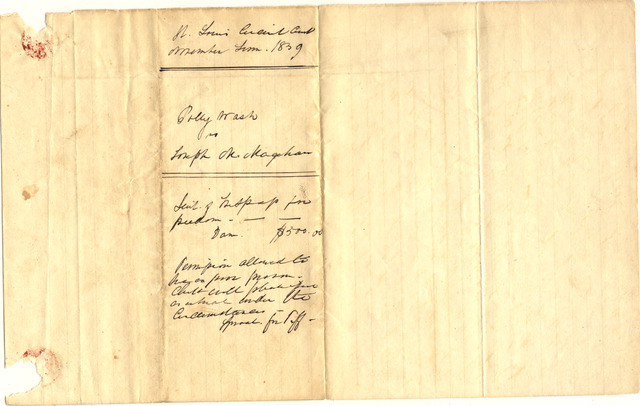 St. Louis Circuit Court
November Term. 1839
Polly Wash
vs
Joseph M. Magehan
Suit of Trespass for
freedom - — —
Dam. $500.00
Permission allowed to
sue as poor person -
Clerk will please
as usual under the
Circumstances
for Plff -